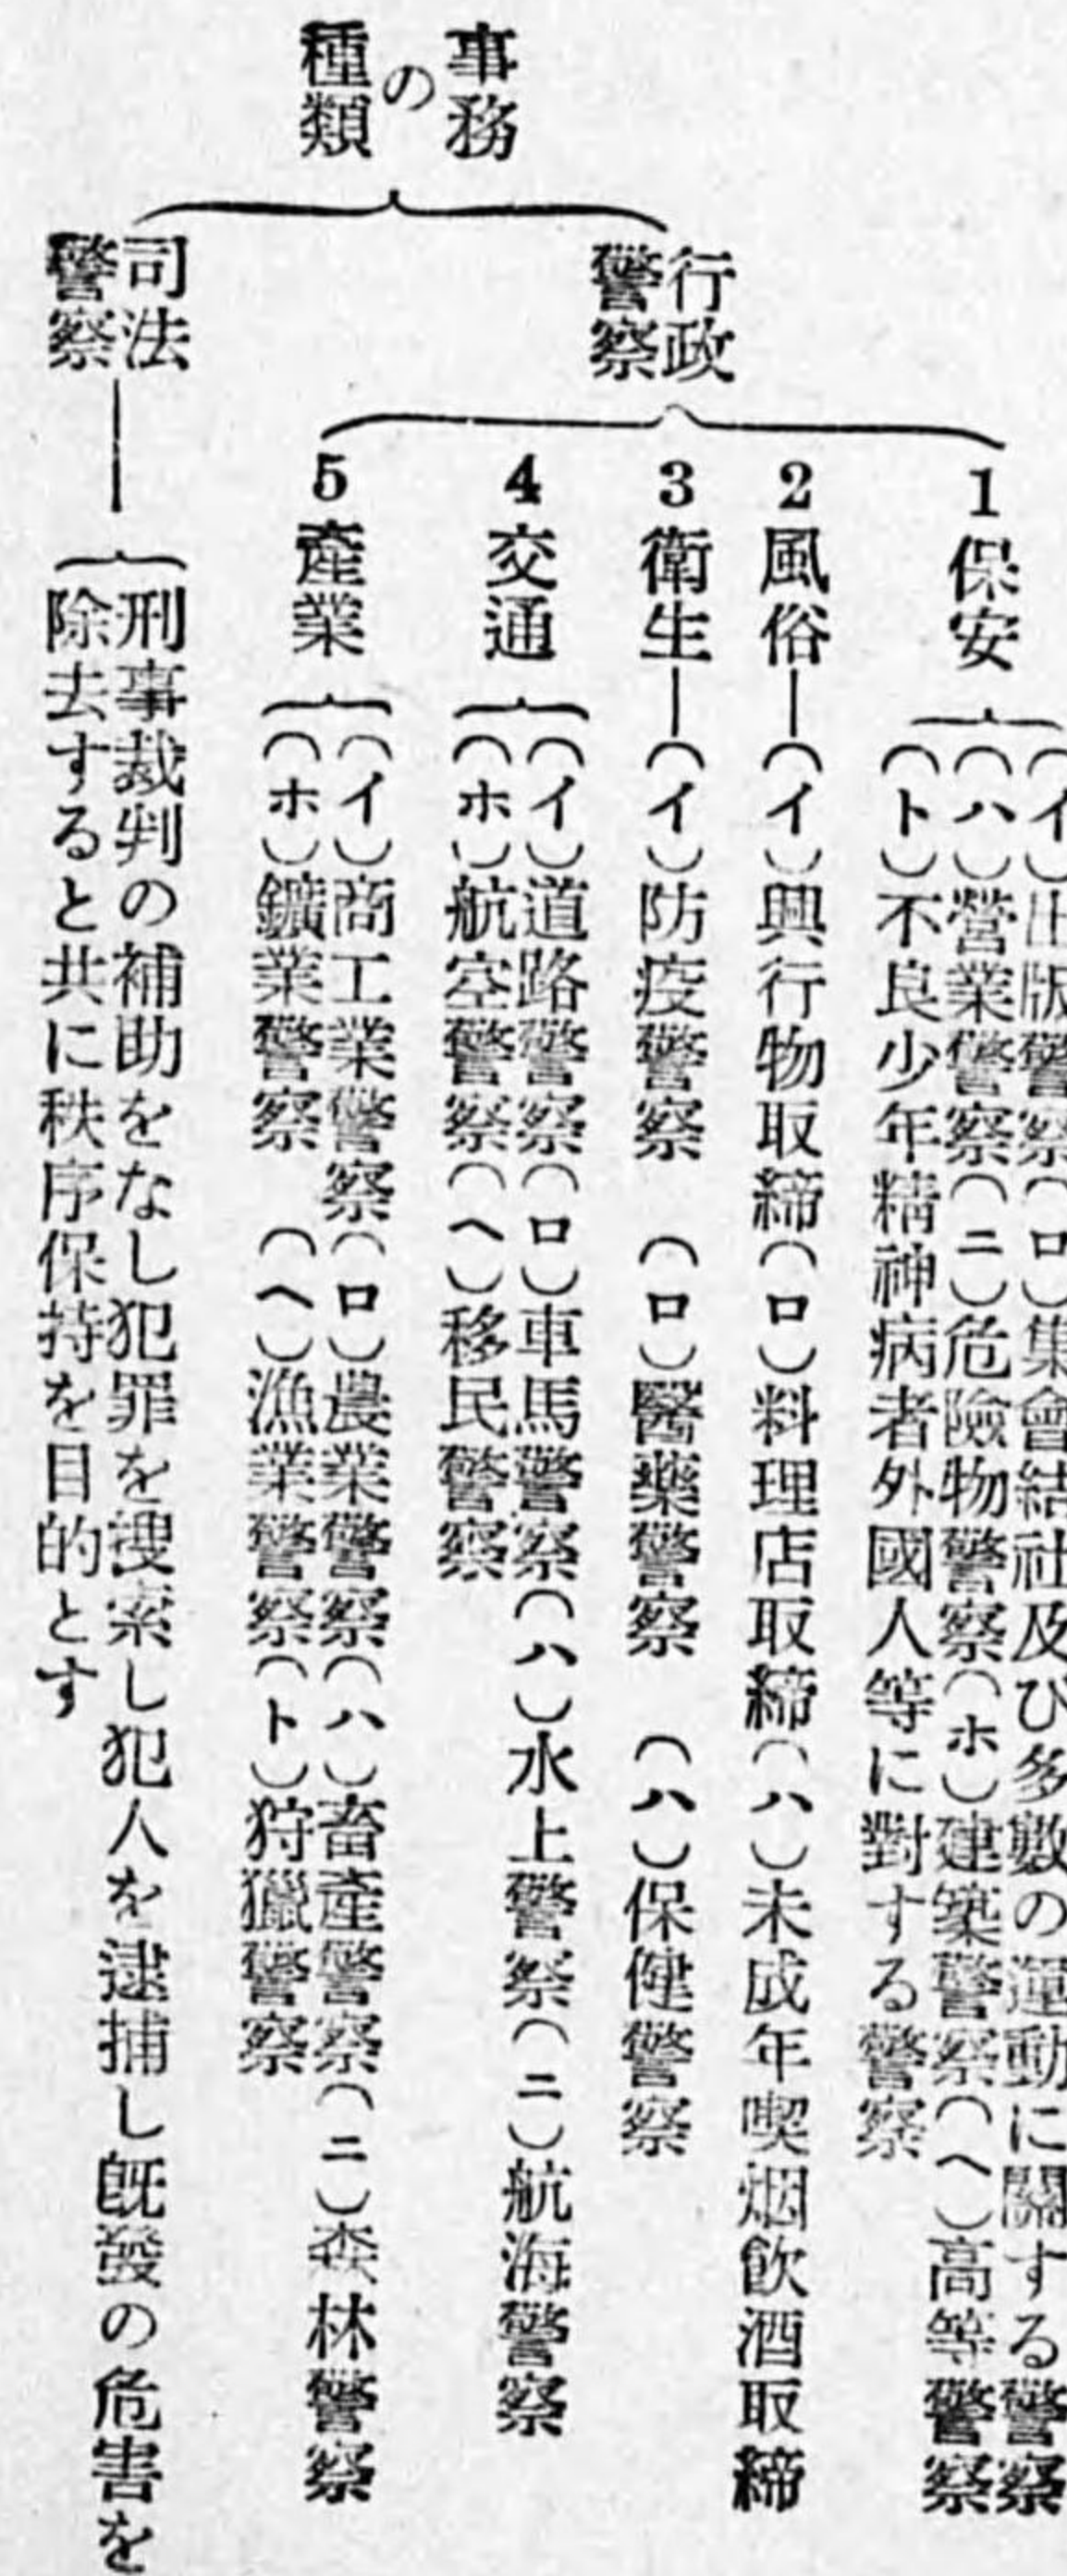 事務
の
種類
行政
警察
1 保安
(イ)出版警察(ロ)集會結社及び多數の運動に關する警察
(ハ)營業警察(ニ)危險物警察(ホ)建築警察(ヘ)高等警察
(ト)不良少年精神病者外國人等に對する警察
2 風俗―(イ)興行物取締(ロ)料理店取締(ハ)未成年喫烟飮酒取締
3 衛生―(イ)防疫警察 (ロ)醫藥警察 (ハ)保健警察
4 交通
(イ)道路警察(ロ)車馬警察(ハ)水上警察(ニ)航海警察
(ホ)航空警察(ヘ)移民警察
5 產業
(イ)商工業警察(ロ)農業警察(ハ)畜產警察(ニ)森林警察
(ホ)鑛業警察 (ヘ)漁業警察(ト)狩獵警察
司法
警察
刑事裁判の補助をなし犯罪を搜索し犯人を逮捕し既發の危害を
除去すると共に秩序保持を目的とす